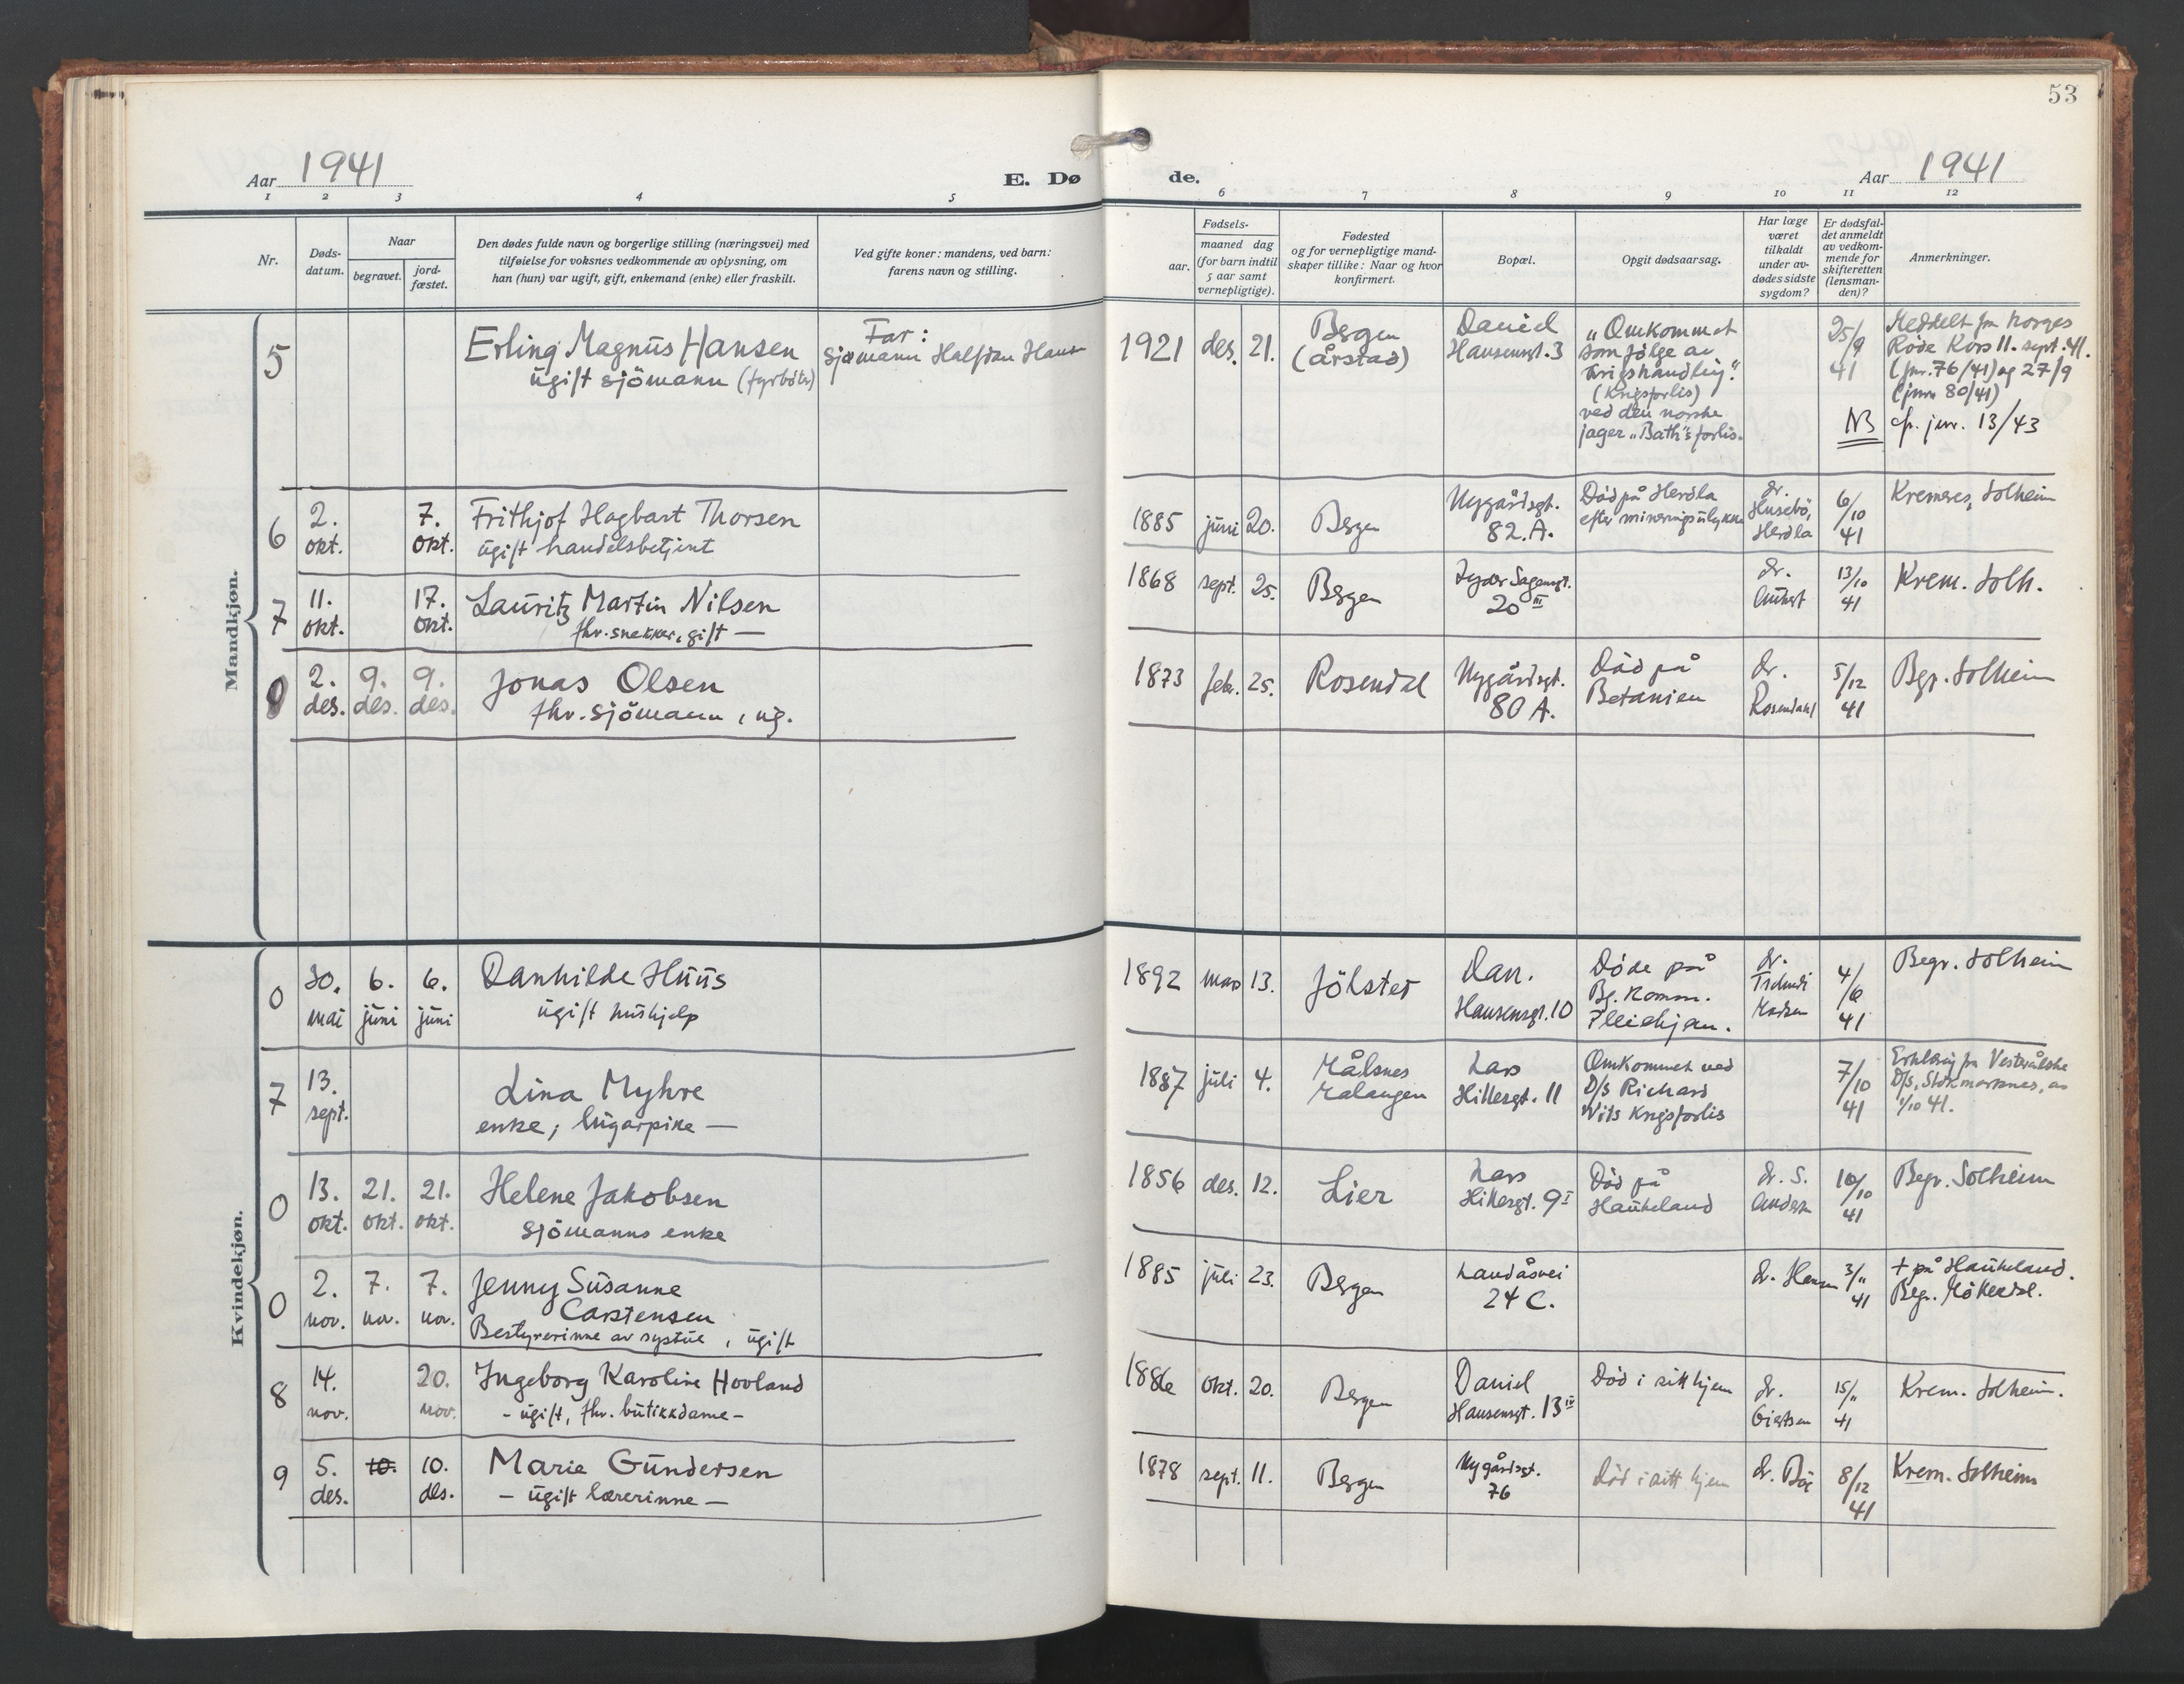 53
Aar 1941
E. Dø de.
Aar 1941
1 2 3 4 5 6 7 8 9 10 11 12
Nr.
Døds-
datum.
Naar
begravet.
jord-
fæstet.
Den dødes fulde navn og borgerlige stilling (næringsvei) med
tilføielse for voksnes vedkommende av oplysning, om
han (hun) var ugift, gift, enkemand (enke) eller fraskilt.
Ved gifte koner: mandens, ved barn:
farens navn og stilling.
Fødsels-
aar.
maaned dag
(for barn indtil
5 aar samt
vernepligtige).
Fødested
og for vernepligtige mand-
skaper tillike: Naar og hvor
konfirmert.
Bopæl.
Opgit dødsaarsag.
Har læge
været
tilkaldt
under av-
dødes sidste
sygdom?
Er dødsfal-
det anmeldt
av vedkom-
mende for
skifteretten
(lensman-
den)?
Anmerkninger.
Mandkjøn.
5
Erling Magnus Hansen
ugift sjömann (fyrböter)
Far:
Sjømann Halfdan Hansen
1921 des. 21.
Bergen
(Årstad)
Daniel
Hansensgt. 3
„Omkommet
som følge av
krigshandling."
(Krigsforlis)
ved den norske
jager „Bath"s forlis.
25/9
41
Meddelt fra Norges
Røde Kors 11. sept. 41.
(jnr. 76/41) og 27/9
(jnr. 80/41)
NB cfr. jnr. 13/43
6
2.
okt.
7.
okt.
Frithjof Hagbart Thorsen
ugift handelsbetjent
1885 juni 20.
Bergen
Nygårdsgt.
82. A.
Död på Herdla
efter mineringsulykke
dr.
Husebö,
Herdla
6/10
41
Kremeres, Solheim
7
11.
okt.
17.
okt.
Lauritz Martin Nilsen
fhv. snekker, gift —
1868 sept. 25.
Bergen
Lyder Sagensgt.
20 III
dr.
13/10
41
Krem. Solh.
2.
des.
9.
des.
9.
des.
Jonas Olsen
fhv. sjömann, ug.
1873 feb. 25.
Rosendal
Nygårdsgt.
80 A.
Död på
Betanien
dr.
Rosendahl
5/12
41
Bgr. Solheim
Kvindekjøn.
0
30.
mai
6.
juni
6.
juni
Ranhilde Huus
ugift hushjelp
1892 mars 13.
Jölster
Dan.
Hansensgt. 10
Döde på
Bg. Komm.
Pleiehjem.
dr.
Tschudi
Madsen
4/6
41
Begr. Solheim
7
13.
sept.
Lina Myhre
enke, lugarpike —
1887 juli 4.
Målsnes
Malangen
Lars
Hillesgt. 11
Omkommet ved
D/S Richard
Withs Krigsforlis
7/10
41
Erklæring fra Vesterålske
D/S, Stokmarknes, av
1/10 41.
0
13.
okt.
21.
okt.
21.
okt.
Helene Jakobsen
sjömanns enke
1856 des. 12.
Lier
Lars
Hillesgt. 9 I
Död på
Haukeland
dr. S.
10/10
41
Begr. Solheim
0
2.
nov.
7.
nov.
7.
nov.
Jenny Susanne
Carstensen
Bestyrerinne av systue, ugift
1885 juli 23.
Bergen
Landåsvei
24 C.
dr.
3/11
41
+ på Haukeland.
Begr. Möllendal.
8
14.
nov.
20.
nov.
Ingeborg Karoline Hovland
- ugift, fhv. butikkdame -
1886 okt. 20.
Bergen
Daniel
Hansensgt. 13 IV
Död i sitt hjem
dr.
Giertsen
15/11
41
Krem. Solheim.
9
5.
des.
10.
10.
des.
Marie Gundersen
- ugift lærerinne -
1878 sept. 11.
Bergen
Nygårdsgt.
76
Död i sitt hjem
dr. Böe
8/12
41
Krem. Solheim